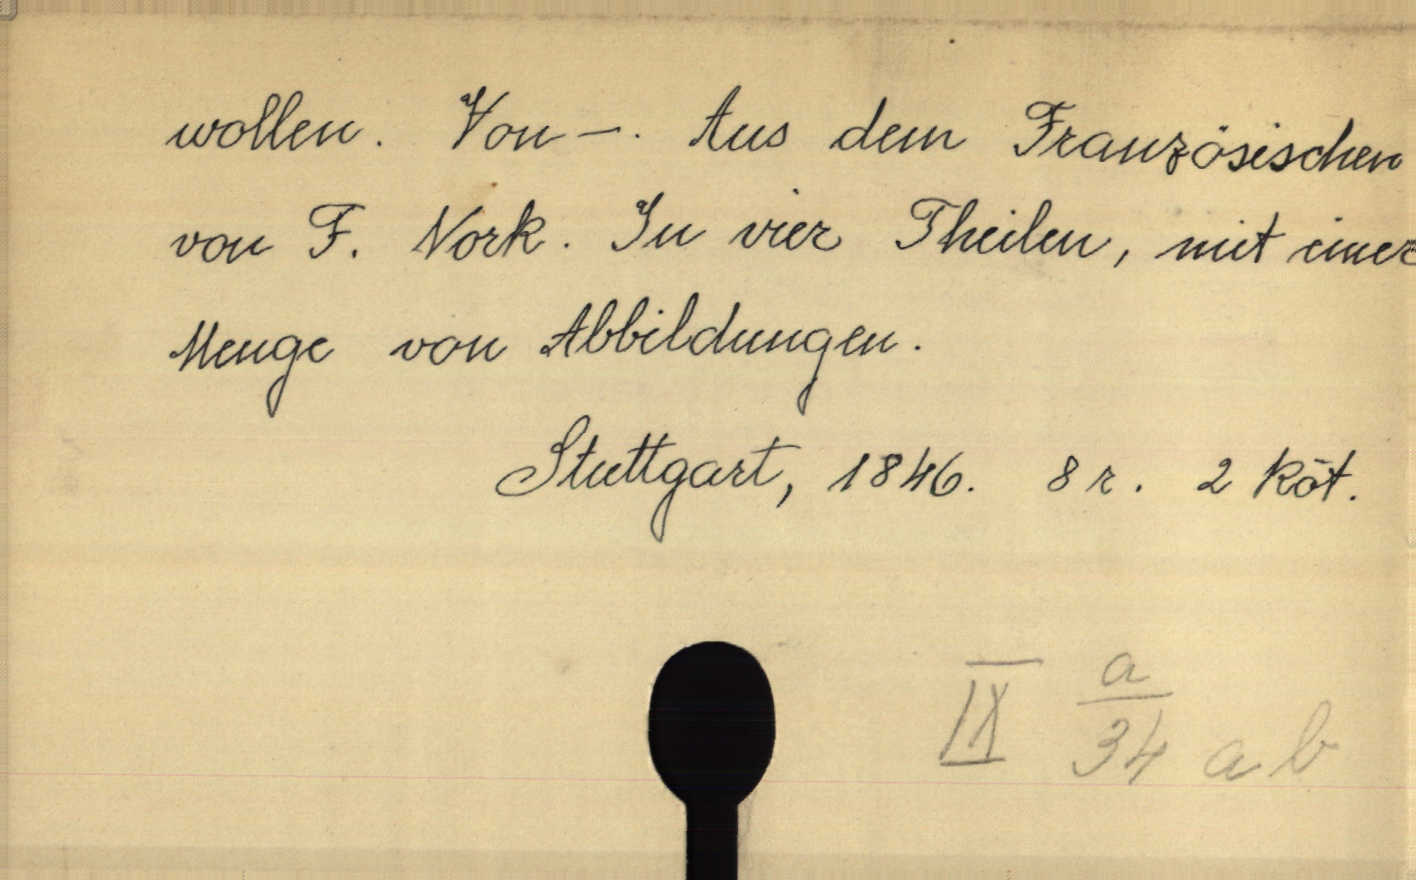 wollen. Von —. Aus dem Französischen
von F. Nork. In vier Theilen, mit einer
Menge von Abbildungen.
Stuttgart, 1846. 8 r. 2 köt.
IX a/34 a b